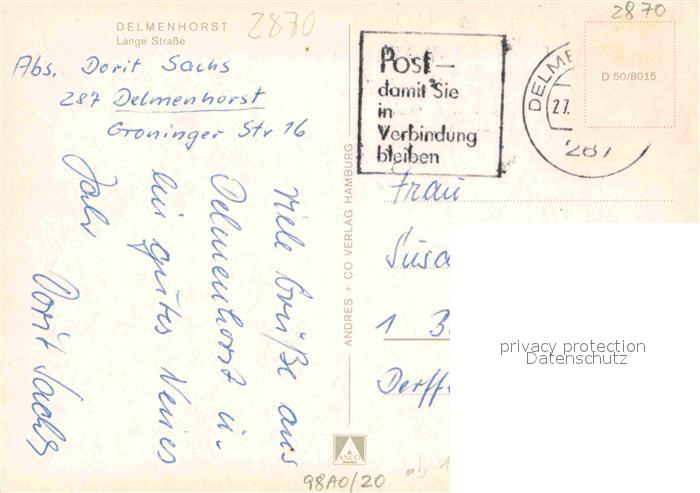 DELMENHORST
Lange Straße
2870
Abs. Dorit Sachs
287 Delmenhorst
Groninger Str 16
Viele Grüße aus
Delmenhorst u.
ein gutes Neues
Jahr Dorit Sachs
ANDRES + CO VERLAG HAMBURG
ANCO
98A0/20
Post –
damit Sie
in
Verbindung
bleiben
DELME
27.
287
2870
D 50/8015
Frau
Susa
1 B
Derff
privacy protection
Datenschutz